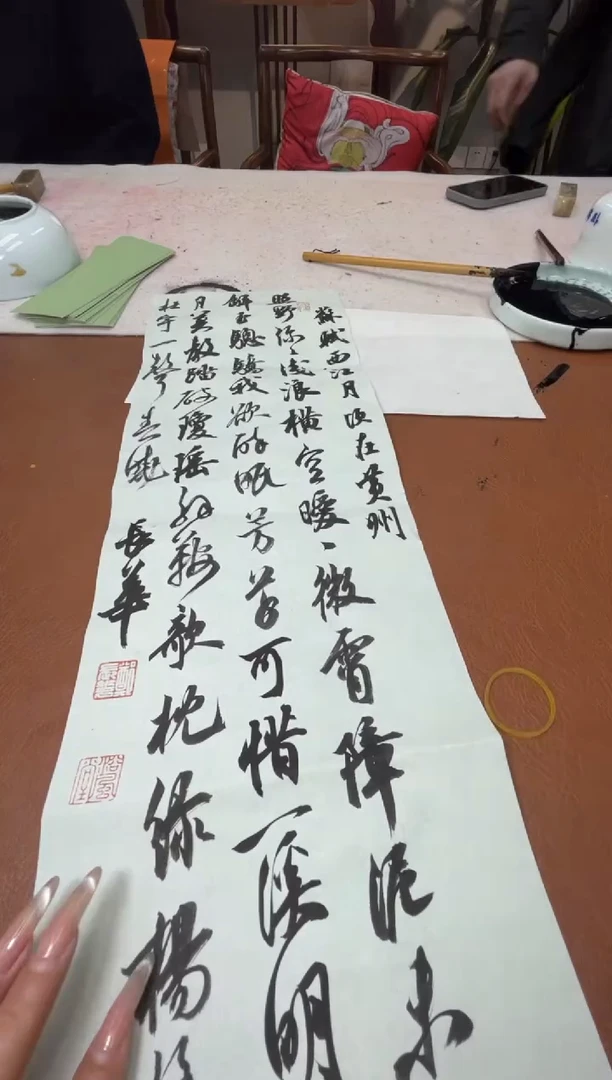 蘇軾西江月頃在黄州
照野弥〻浅浪横空曖〻微霄障泥未
解玉驄驕我欲醉眠芳草可惜一溪明
月莫教踏破瓊瑶解鞍欹枕緑楊
杜宇一聲春曉
長華